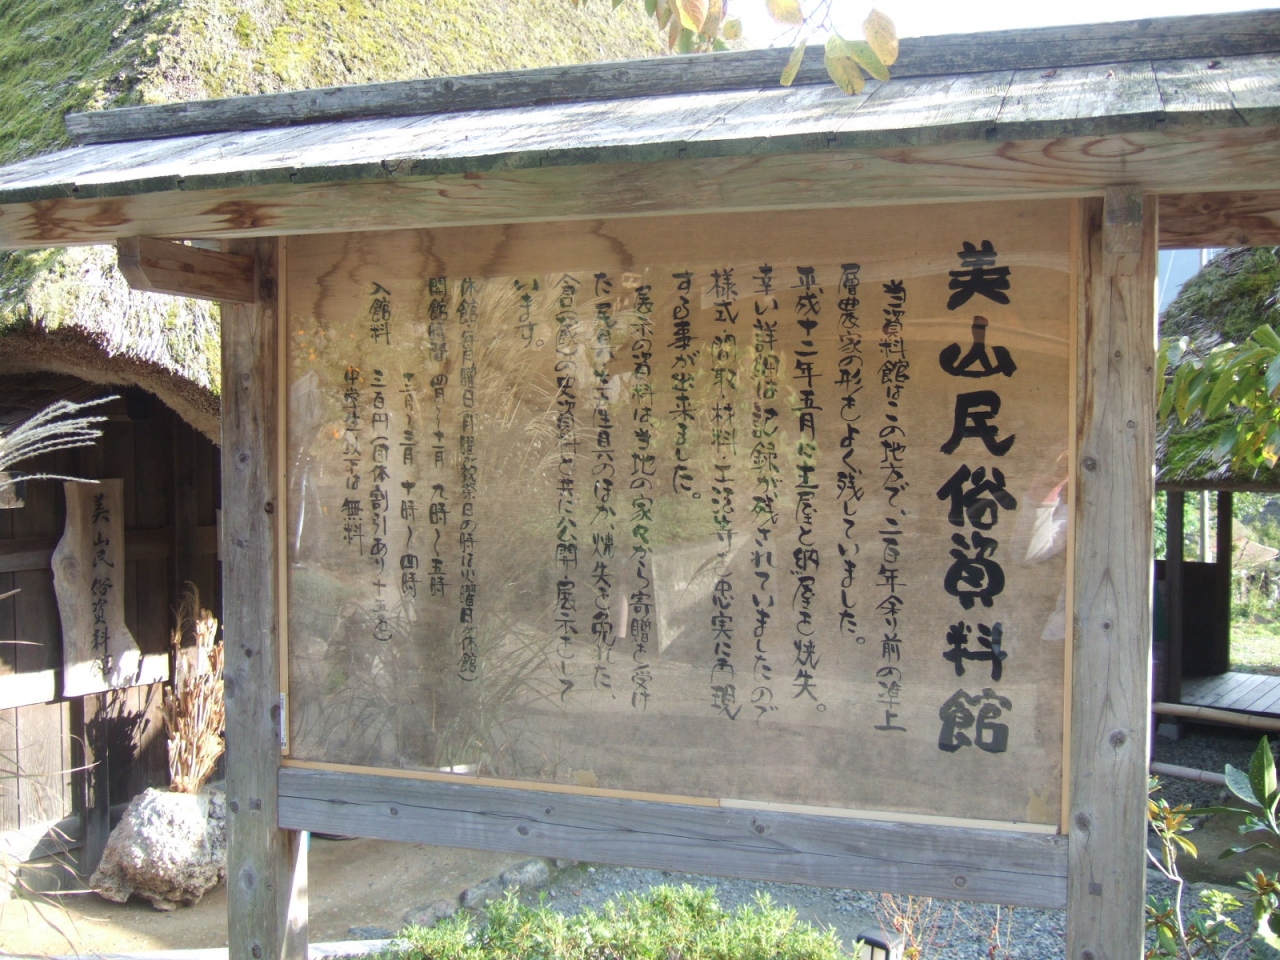 美山民俗資料館
当資料館はこの地方で、二百年余り前の準上
層農家の形をよく残していました。
平成十二年五月に主屋と納屋を焼失。
幸い詳細な記録が残されていましたので
様式・間取・材料・工法等を忠実に再現
する事が出来ました。
展示の資料は当地の家々から寄贈を受け
た民具・生産具のほか、焼失を免れた、
倉(蔵)の史次資料と共に公開・展示をして
います。
休館(毎月曜日・月曜が祝祭日の時は火曜日が休館)
開館時間 四月〜十一月 九時〜五時
十二月〜三月 十時〜四時
入館料 三百円(団体割引あり 十五名〜)
中学生以下は無料
美山民俗資料